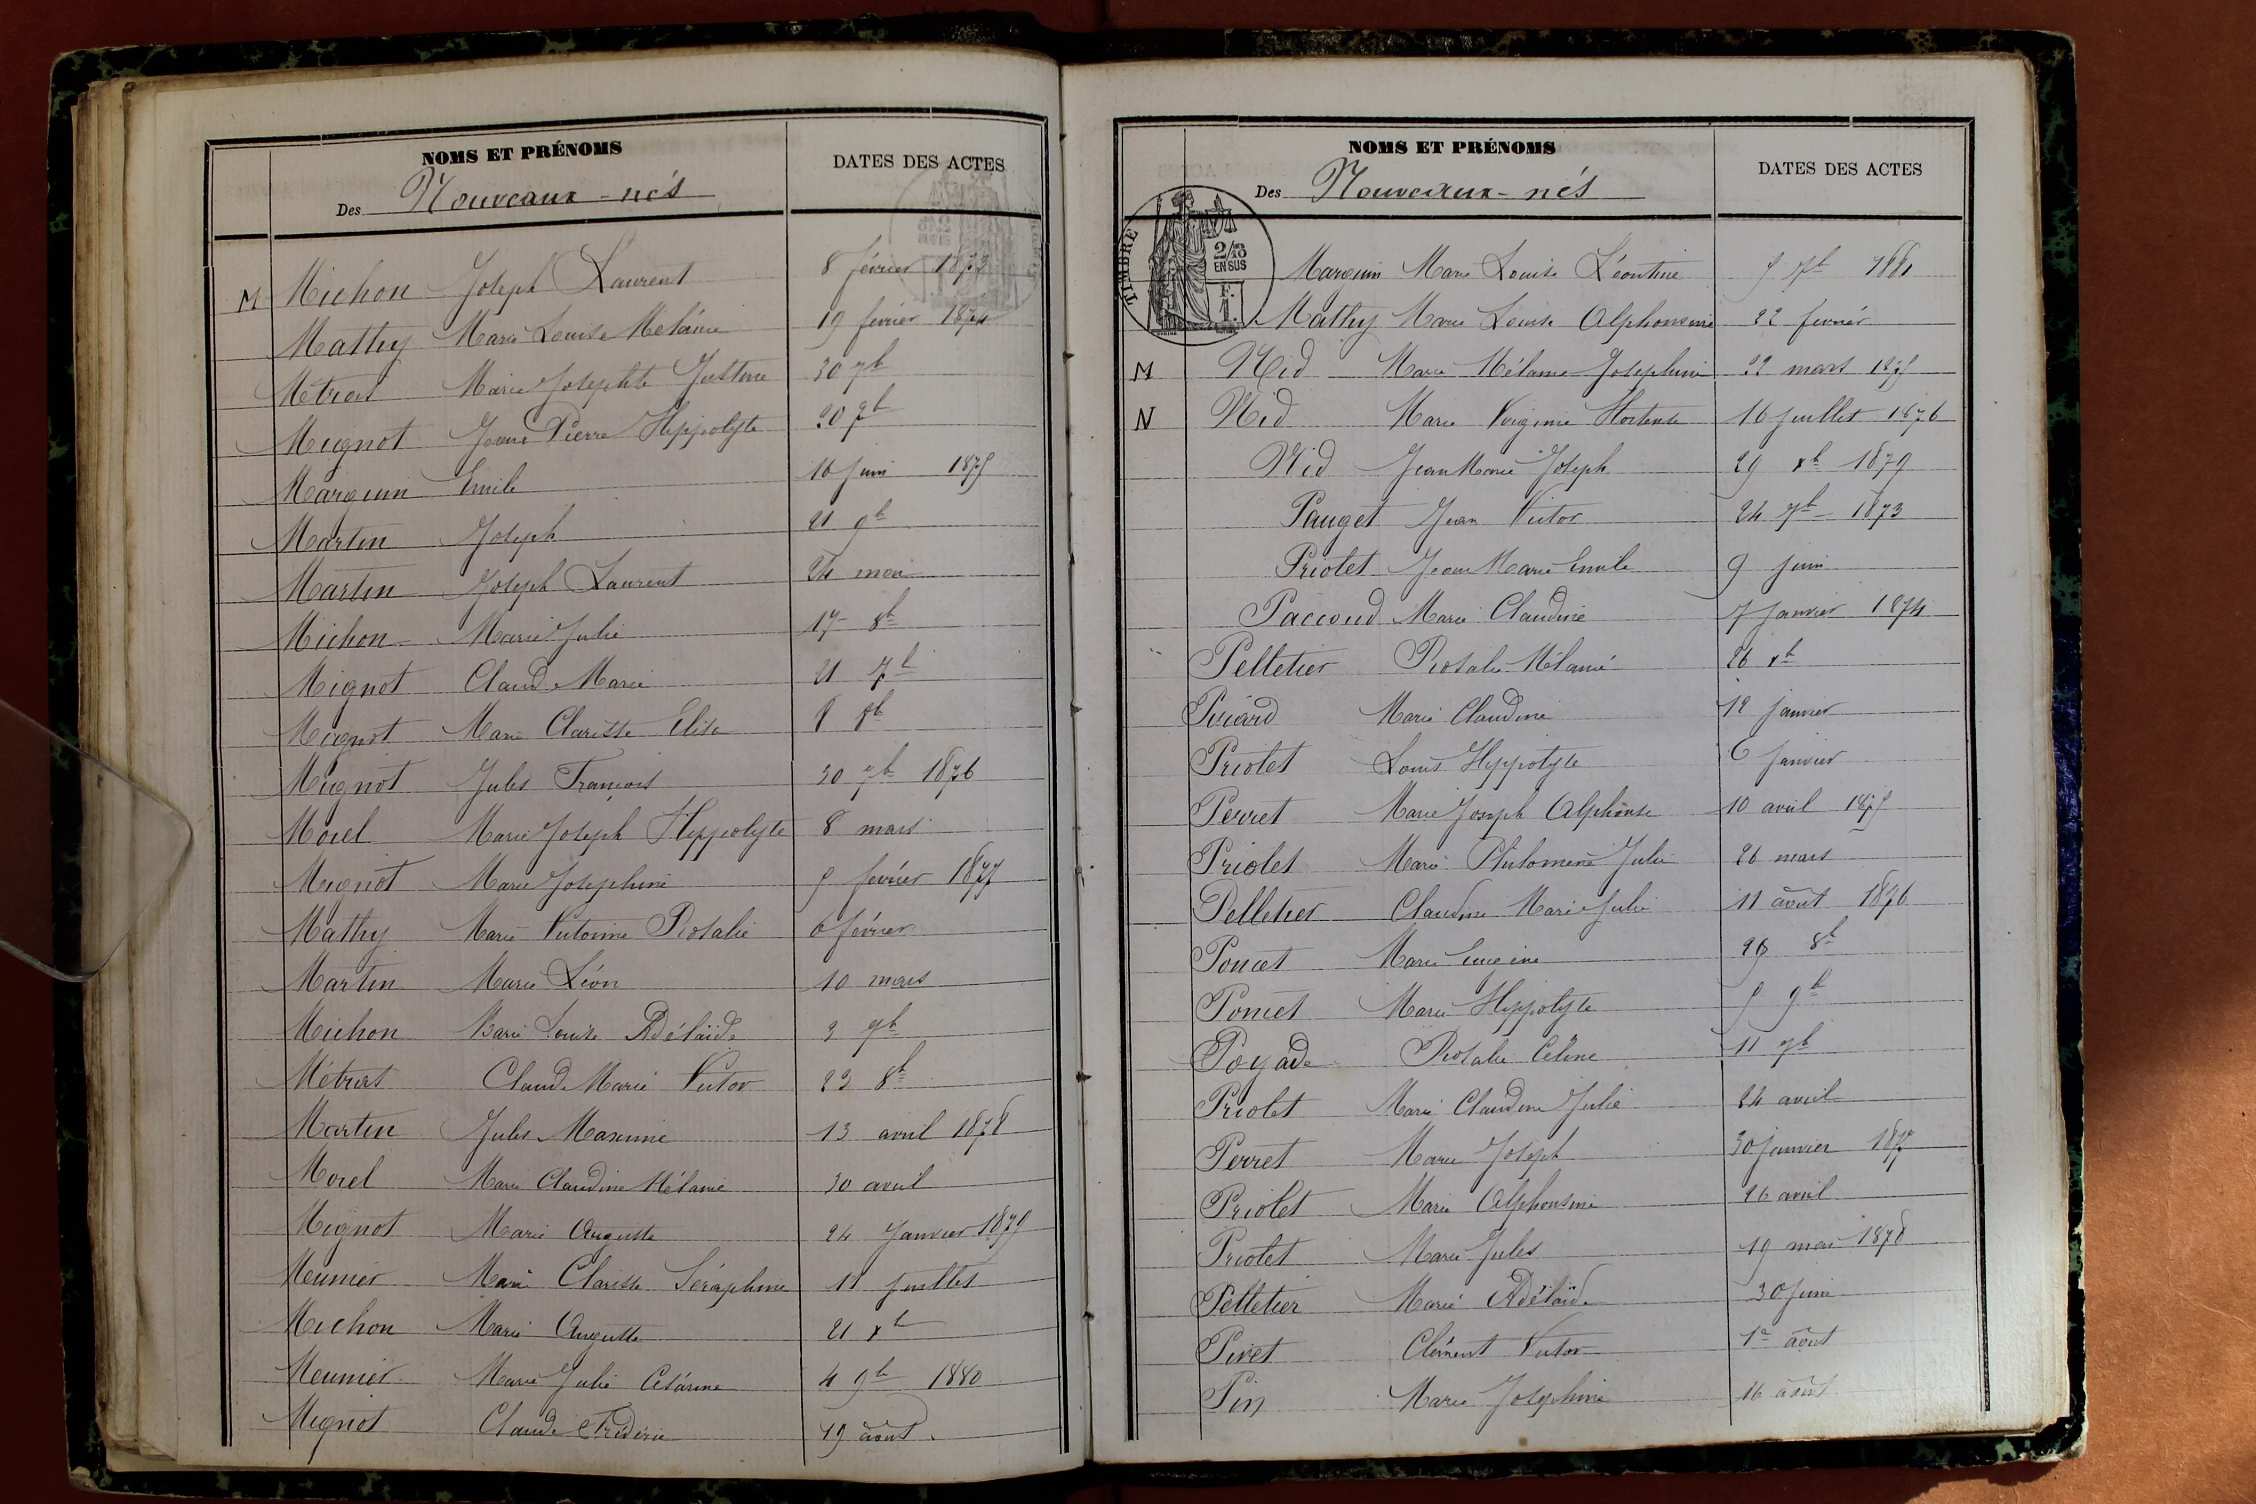 NOMS ET PRÉNOMS
DATES DES ACTES
Des Nouveaux-nés
M Michon Joseph Laurent 8 février 1873
Mathy Marie Louise Mélanie 19 février 1874
Métras Marie Josephte Justine 30 7b
Mignot Jean Pierre Hippolyte 20 7b
Marguin Emile 16 juin 1875
Martin Joseph 21 9b
Martin Joseph Laurent 24 mai
Michon Marie Julie 17 8b
Mignot Claude Marie 21 7b
Mignot Marie Clarisse Elise 8 8b
Mignot Jules François 30 7b 1876
Morel Marie Joseph Hippolyte 8 mars
Mignot Marie Josephine 5 février 1877
Mathy Marie Victorine Rosalie 6 février
Martin Marie Léon 10 mars
Michon Marie Louise Adélaïde 3 9b
Métras Claude Marie Victor 23 8b
Martin Jules Maxime 13 avril 1878
Morel Marie Claudine Mélanie 30 avril
Mignot Marie Auguste 24 Janvier 1879
Meunier Marie Clarisse Séraphine 11 juillet
Michon Marie Auguste 21 xb
Meunier Marie Julie Césarine 4 9b 1880
Mignot Claude Frédéric 19 août.
NOMS ET PRÉNOMS
DATES DES ACTES
Des Nouveaux-nés
TIMBRE
2/10
EN SUS
F.
1.
Marguin Marie Louise Léontine 5 7b 1881
Mathy Marie Louise Alphonsine 22 février
M Nid Marie Mélanie Josephine 22 mars 1875
N Nid Marie Virginie Hortense 16 juillet 1876
Nid Jean Marie Joseph 29 xb 1879
Pauget Jean Victor 24 7b 1873
Priolet Jean Marie Emile 9 juin
Paccoud Marie Claudine 7 Janvier 1874
Pelletier Rosalie Mélanie 26 xb
Marie Claudine 12 janvier
Priolet Louis Hyppolyte 6 janvier
Perret Marie Joseph Alphonse 10 avril 1875
Priolet Marie Philomène Julie 26 mars
Pelletier Claudine Marie Julie 11 août 1876
Poncet Marie Eugène 26 8b
Poncet Marie Hippolyte 5 9b
Poyade Rosalie Céline 11 7b
Priolet Marie Claudine Julie 24 avril
Perret Marie Joseph 30 janvier 1877
Priolet Marie Alphonsine 26 avril
Priolet Marie Jules 19 mai 1878
Pelletier Marie Adélaïde 30 juin
Pivet Clément Victor 1er août
Pin Marie Josephine 16 août